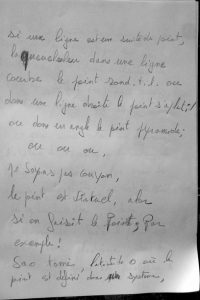 si une ligne est une suite de point,
la dans une ligne
courbe le point sond-t-il ou
dans une ligne droite le point s'
ou dans un angle le point pyramide.
ou ou ou,
Ne soyons pas couyon,
le point est , alor
si on faisait le Point, Par
exemple!
Sao tomé. ou le
point est définé dans système,